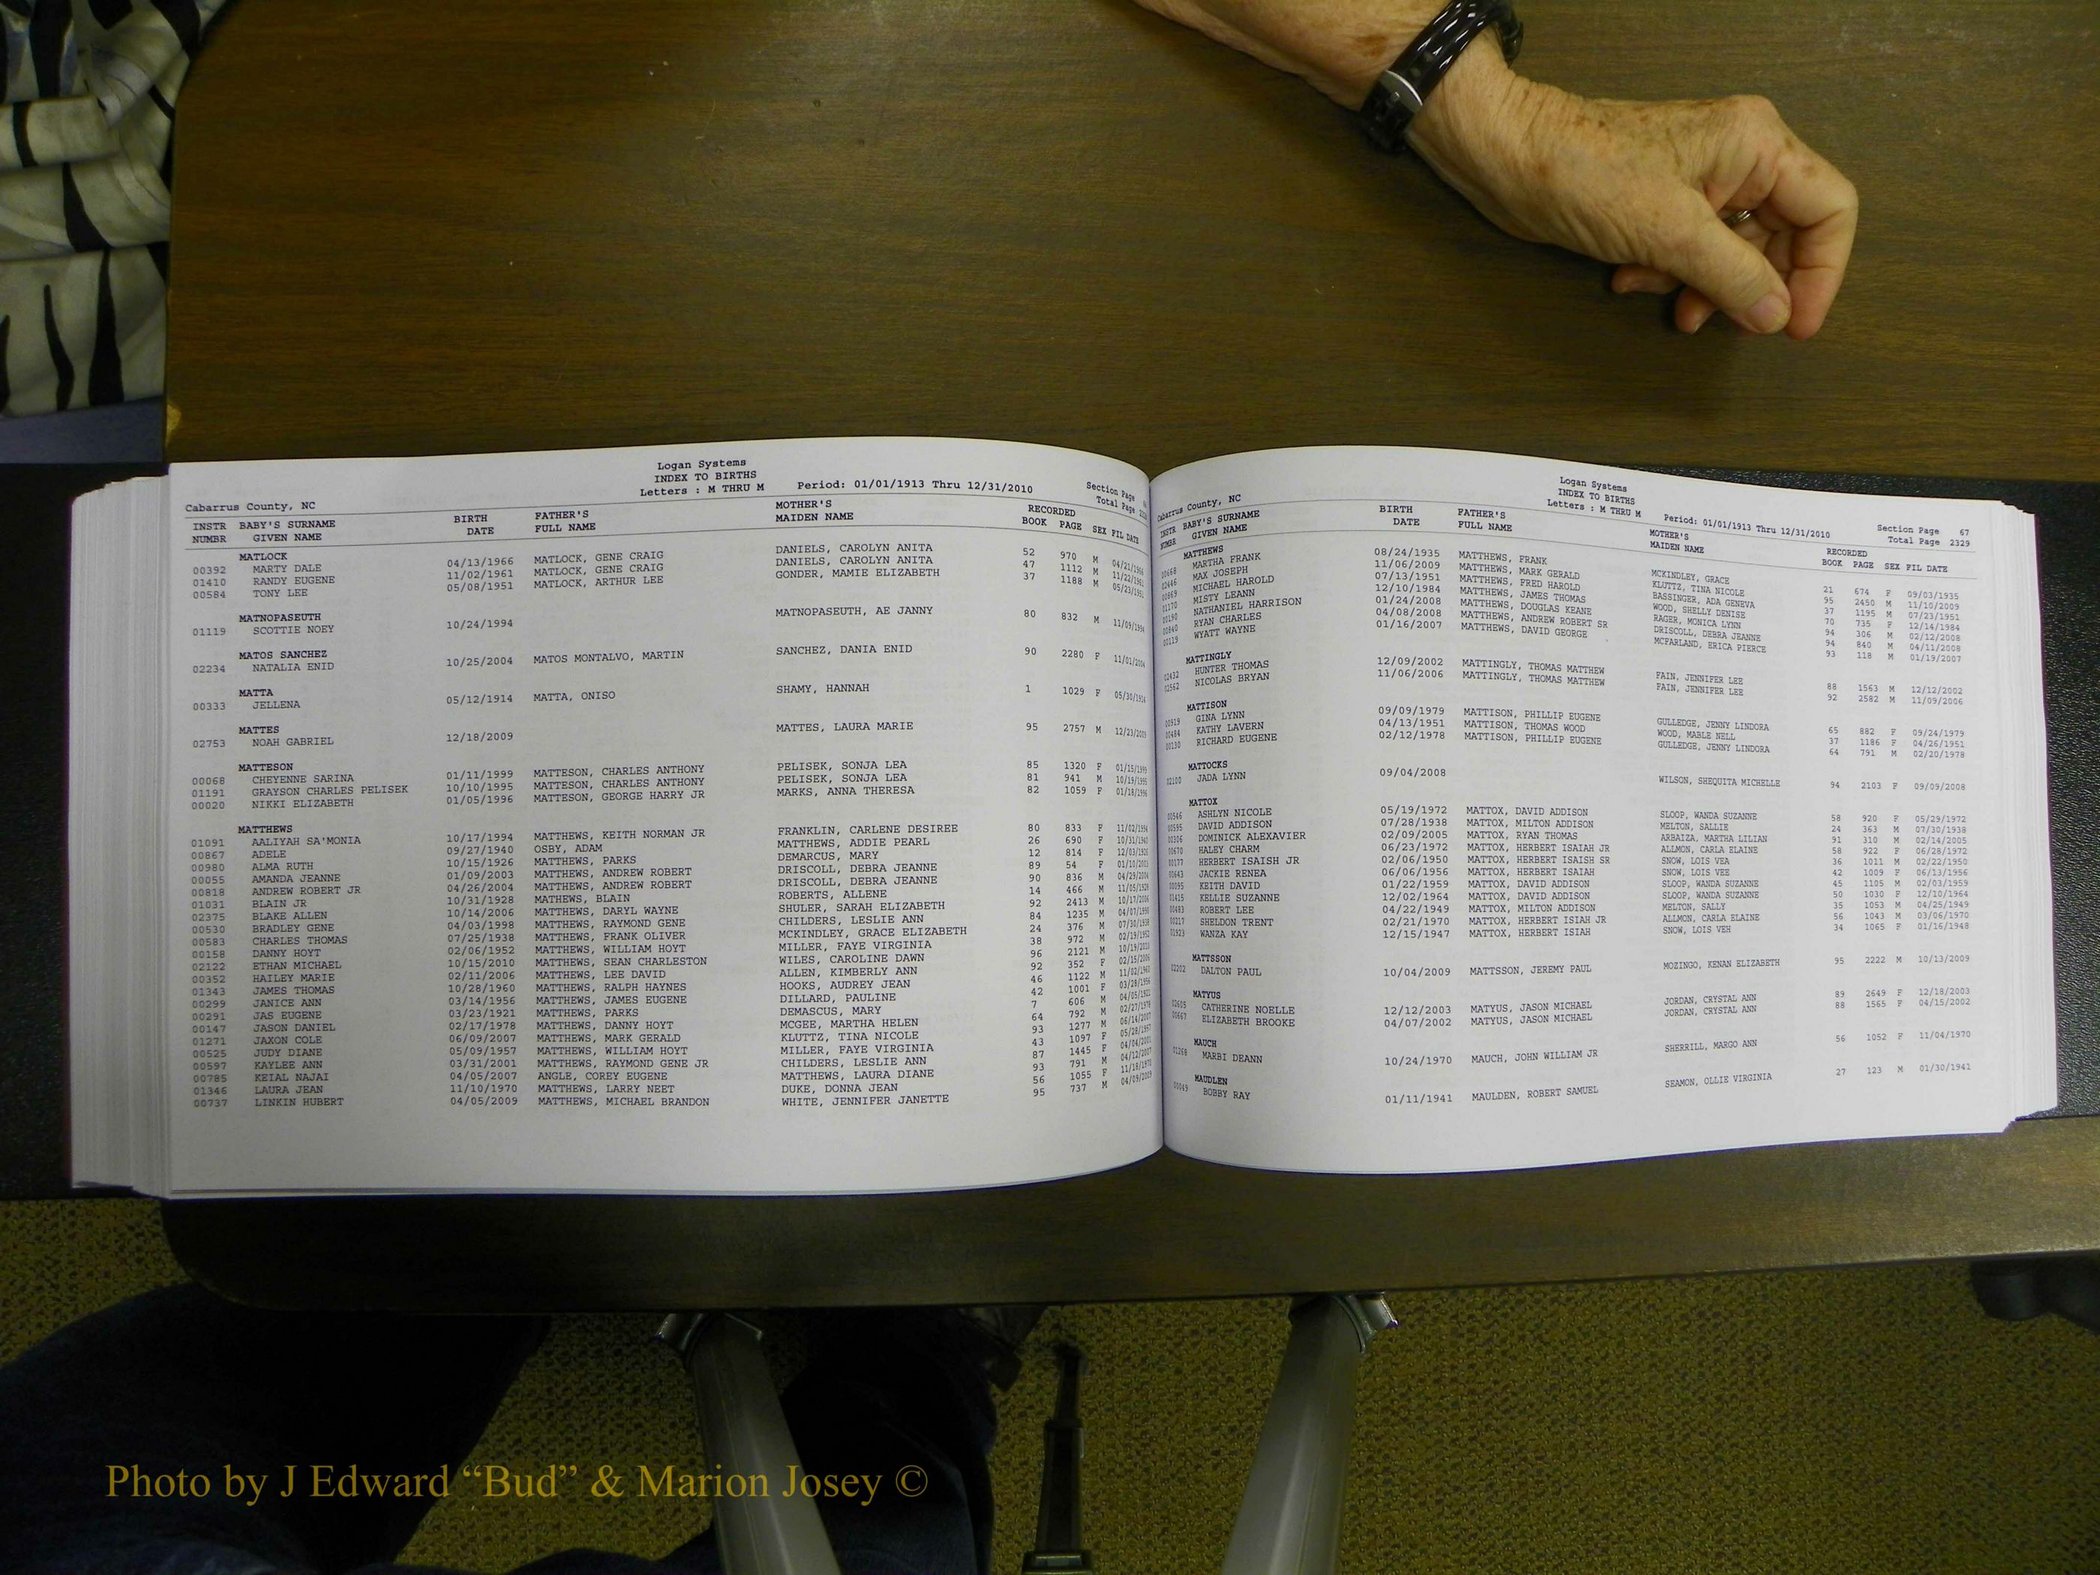 Logan Systems
INDEX TO BIRTHS
Letters : M THRU M Period: 01/01/1913 Thru 12/31/2010 Section Page
Cabarrus County, NC Total Page
INSTR BABY'S SURNAME BIRTH FATHER'S MOTHER'S RECORDED
NUMBR GIVEN NAME DATE FULL NAME MAIDEN NAME BOOK PAGE SEX FIL DATE
MATLOCK
00392 MARTY DALE 04/13/1966 MATLOCK, GENE CRAIG DANIELS, CAROLYN ANITA 52 970 M 04/21/1966
01410 RANDY EUGENE 11/02/1961 MATLOCK, GENE CRAIG DANIELS, CAROLYN ANITA 47 1112 M 11/22/1961
00584 TONY LEE 05/08/1951 MATLOCK, ARTHUR LEE GONDER, MAMIE ELIZABETH 37 1188 M 05/23/1951
MATNOPASEUTH
01119 SCOTTIE NOEY 10/24/1994 MATNOPASEUTH, AE JANNY 80 832 M 11/09/1994
MATOS SANCHEZ
02234 NATALIA ENID 10/25/2004 MATOS MONTALVO, MARTIN SANCHEZ, DANIA ENID 90 2280 F 11/01/2004
MATTA
00333 JELLENA 05/12/1914 MATTA, ONISO SHAMY, HANNAH 1 1029 F 05/30/1914
MATTES
02753 NOAH GABRIEL 12/18/2009 MATTES, LAURA MARIE 95 2757 M 12/23/2009
MATTESON
00068 CHEYENNE SARINA 01/11/1999 MATTESON, CHARLES ANTHONY PELISEK, SONJA LEA 85 1320 F 01/15/1999
01191 GRAYSON CHARLES PELISEK 10/10/1995 MATTESON, CHARLES ANTHONY PELISEK, SONJA LEA 81 941 M 10/19/1995
00020 NIKKI ELIZABETH 01/05/1996 MATTESON, GEORGE HARRY JR MARKS, ANNA THERESA 82 1059 F 01/18/1996
MATTHEWS
01091 AALIYAH SA'MONIA 10/17/1994 MATTHEWS, KEITH NORMAN JR FRANKLIN, CARLENE DESIREE 80 833 F 11/02/1994
00867 ADELE 09/27/1940 OSBY, ADAM MATTHEWS, ADDIE PEARL 26 690 F 10/31/1940
00980 ALMA RUTH 10/15/1926 MATTHEWS, PARKS DEMARCUS, MARY 12 814 F 12/03/1926
00055 AMANDA JEANNE 01/09/2003 MATTHEWS, ANDREW ROBERT DRISCOLL, DEBRA JEANNE 89 54 F 01/10/2003
00818 ANDREW ROBERT JR 04/26/2004 MATTHEWS, ANDREW ROBERT DRISCOLL, DEBRA JEANNE 90 836 M 04/29/2004
01031 BLAIN JR 10/31/1928 MATHEWS, BLAIN ROBERTS, ALLENE 14 466 M 11/05/1928
02375 BLAKE ALLEN 10/14/2006 MATTHEWS, DARYL WAYNE SHULER, SARAH ELIZABETH 92 2413 M 10/17/2006
00530 BRADLEY GENE 04/03/1998 MATTHEWS, RAYMOND GENE CHILDERS, LESLIE ANN 84 1235 M 04/07/1998
00583 CHARLES THOMAS 07/25/1938 MATTHEWS, FRANK OLIVER MCKINDLEY, GRACE ELIZABETH 24 376 M 07/30/1938
00158 DANNY HOYT 02/06/1952 MATTHEWS, WILLIAM HOYT MILLER, FAYE VIRGINIA 38 972 M 02/19/1952
02122 ETHAN MICHAEL 10/15/2010 MATTHEWS, SEAN CHARLESTON WILES, CAROLINE DAWN 96 2121 M 10/19/2010
00352 HAILEY MARIE 02/11/2006 MATTHEWS, LEE DAVID ALLEN, KIMBERLY ANN 92 352 F 02/15/2006
01343 JAMES THOMAS 10/28/1960 MATTHEWS, RALPH HAYNES HOOKS, AUDREY JEAN 46 1122 M 11/02/1960
00299 JANICE ANN 03/14/1956 MATTHEWS, JAMES EUGENE DILLARD, PAULINE 42 1001 F 03/28/1956
00291 JAS EUGENE 03/23/1921 MATTHEWS, PARKS DEMASCUS, MARY 7 606 M 04/05/1921
00147 JASON DANIEL 02/17/1978 MATTHEWS, DANNY HOYT MCGEE, MARTHA HELEN 64 792 M 02/27/1978
01271 JAXON COLE 06/09/2007 MATTHEWS, MARK GERALD KLUTTZ, TINA NICOLE 93 1277 M 06/14/2007
00525 JUDY DIANE 05/09/1957 MATTHEWS, WILLIAM HOYT MILLER, FAYE VIRGINIA 43 1097 F 05/28/1957
00597 KAYLEE ANN 03/31/2001 MATTHEWS, RAYMOND GENE JR CHILDERS, LESLIE ANN 87 1445 F 04/04/2001
00785 KEIAL NAJAI 04/05/2007 ANGLE, COREY EUGENE MATTHEWS, LAURA DIANE 93 791 M 04/12/2007
01346 LAURA JEAN 11/10/1970 MATTHEWS, LARRY NEET DUKE, DONNA JEAN 56 1055 F 11/18/1970
00737 LINKIN HUBERT 04/05/2009 MATTHEWS, MICHAEL BRANDON WHITE, JENNIFER JANETTE 95 737 M 04/09/2009
Logan Systems
INDEX TO BIRTHS
Letters : M THRU M Period: 01/01/1913 Thru 12/31/2010 Section Page 67
Cabarrus County, NC Total Page 2329
INSTR BABY'S SURNAME BIRTH FATHER'S MOTHER'S RECORDED
NUMBR GIVEN NAME DATE FULL NAME MAIDEN NAME BOOK PAGE SEX FIL DATE
MATTHEWS
00668 MARTHA FRANK 08/24/1935 MATTHEWS, FRANK MCKINDLEY, GRACE 21 674 F 09/03/1935
02446 MAX JOSEPH 11/06/2009 MATTHEWS, MARK GERALD KLUTTZ, TINA NICOLE 95 2450 M 11/10/2009
00869 MICHAEL HAROLD 07/13/1951 MATTHEWS, FRED HAROLD BASSINGER, ADA GENEVA 37 1195 M 07/23/1951
01170 MISTY LEANN 12/10/1984 MATTHEWS, JAMES THOMAS WOOD, SHELLY DENISE 70 735 F 12/14/1984
00190 NATHANIEL HARRISON 01/24/2008 MATTHEWS, DOUGLAS KEANE RAGER, MONICA LYNN 94 306 M 02/12/2008
00840 RYAN CHARLES 04/08/2008 MATTHEWS, ANDREW ROBERT SR DRISCOLL, DEBRA JEANNE 94 840 M 04/11/2008
00119 WYATT WAYNE 01/16/2007 MATTHEWS, DAVID GEORGE MCFARLAND, ERICA PIERCE 93 118 M 01/19/2007
MATTINGLY
02432 HUNTER THOMAS 12/09/2002 MATTINGLY, THOMAS MATTHEW FAIN, JENNIFER LEE 88 1563 M 12/12/2002
02562 NICOLAS BRYAN 11/06/2006 MATTINGLY, THOMAS MATTHEW FAIN, JENNIFER LEE 92 2582 M 11/09/2006
MATTISON
00919 GINA LYNN 09/09/1979 MATTISON, PHILLIP EUGENE GULLEDGE, JENNY LINDORA 65 882 F 09/24/1979
00484 KATHY LAVERN 04/13/1951 MATTISON, THOMAS WOOD WOOD, MABLE NELL 37 1186 F 04/26/1951
00130 RICHARD EUGENE 02/12/1978 MATTISON, PHILLIP EUGENE GULLEDGE, JENNY LINDORA 64 791 M 02/20/1978
MATTOCKS
02100 JADA LYNN 09/04/2008 WILSON, SHEQUITA MICHELLE 94 2103 F 09/09/2008
MATTOX
00546 ASHLYN NICOLE 05/19/1972 MATTOX, DAVID ADDISON SLOOP, WANDA SUZANNE 58 920 F 05/29/1972
00595 DAVID ADDISON 07/28/1938 MATTOX, MILTON ADDISON MELTON, SALLIE 24 363 M 07/30/1938
00306 DOMINICK ALEXAVIER 02/09/2005 MATTOX, RYAN THOMAS ARBAIZA, MARTHA LILIAN 91 310 M 02/14/2005
00670 HALEY CHARM 06/23/1972 MATTOX, HERBERT ISAIAH JR ALLMON, CARLA ELAINE 58 922 F 06/28/1972
00177 HERBERT ISAISH JR 02/06/1950 MATTOX, HERBERT ISAISH SR SNOW, LOIS VEA 36 1011 M 02/22/1950
00643 JACKIE RENEA 06/06/1956 MATTOX, HERBERT ISAIAH SNOW, LOIS VEE 42 1009 F 06/13/1956
00095 KEITH DAVID 01/22/1959 MATTOX, DAVID ADDISON SLOOP, WANDA SUZANNE 45 1105 M 02/03/1959
01415 KELLIE SUZANNE 12/02/1964 MATTOX, DAVID ADDISON SLOOP, WANDA SUZANNE 50 1030 F 12/10/1964
00483 ROBERT LEE 04/22/1949 MATTOX, MILTON ADDISON MELTON, SALLY 35 1053 M 04/25/1949
00217 SHELDON TRENT 02/21/1970 MATTOX, HERBERT ISIAH JR ALLMON, CARLA ELAINE 56 1043 M 03/06/1970
01923 WANZA KAY 12/15/1947 MATTOX, HERBERT ISIAH SNOW, LOIS VEH 34 1065 F 01/16/1948
MATTSSON
02202 DALTON PAUL 10/04/2009 MATTSSON, JEREMY PAUL MOZINGO, KENAN ELIZABETH 95 2222 M 10/13/2009
MATYUS
02605 CATHERINE NOELLE 12/12/2003 MATYUS, JASON MICHAEL JORDAN, CRYSTAL ANN 89 2649 F 12/18/2003
00667 ELIZABETH BROOKE 04/07/2002 MATYUS, JASON MICHAEL JORDAN, CRYSTAL ANN 88 1565 F 04/15/2002
MAUCH
01268 MARBI DEANN 10/24/1970 MAUCH, JOHN WILLIAM JR SHERRILL, MARGO ANN 56 1052 F 11/04/1970
MAUDLEN
00049 BOBBY RAY 01/11/1941 MAULDEN, ROBERT SAMUEL SEAMON, OLLIE VIRGINIA 27 123 M 01/30/1941
Photo by J Edward “Bud” & Marion Josey ©